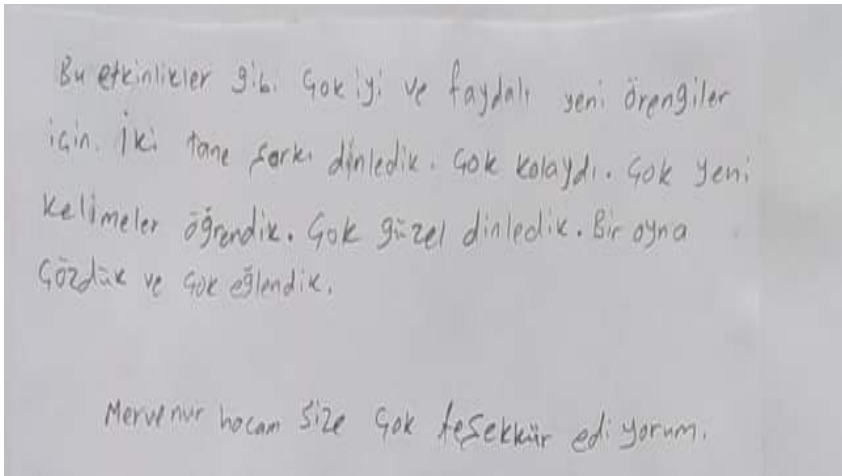 Bu etkinlikler gibi çok iyi ve faydalı yeni örengiler
için. İki tane şarkı dinledik. Çok kolaydı. Çok yeni
kelimeler öğrendik. Çok güzel dinledik. Bir oyna
çözdük ve çok eğlendik.
Mervenur hocam size çok teşekkür ediyorum.